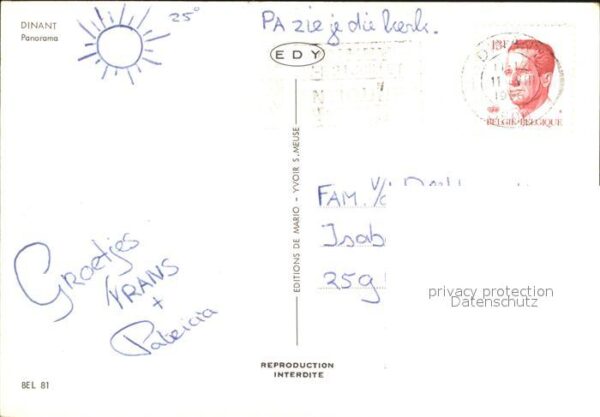 DINANT
Panorama
25°
PA zie je die kerk.
EDY
BELGIË-BELGIQUE
EDITIONS DE MARIO - YVOIR S.MEUSE
FAM. V/d
Isab
25g
Groetjes
FRANS
+
Patricia
privacy protection
Datenschutz
REPRODUCTION
INTERDITE
BEL 81